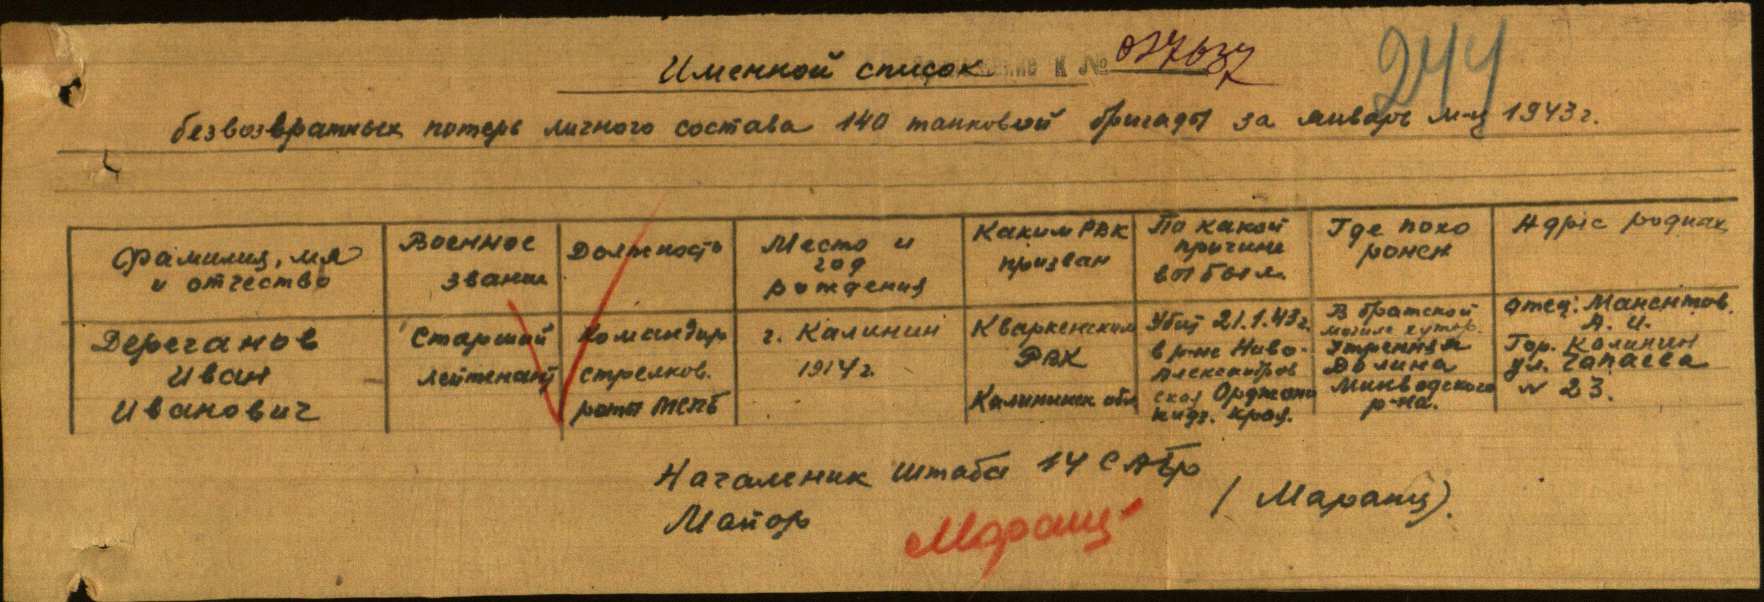 Именной список
К №
244
безвозвратных потерь личного состава 140 танковой бригады за январь м-ц 1943г.
Фамилия, имя
и отчество
Военное
звание
Должность
Место и
год
рождения
Каким РВК
призван
По какой
причине
выбыл
Где похо
ронен
Адрес родных
Дереганов
Иван
Иванович
Старший
лейтенант
Командир
стрелков.
роты МСПБ
г. Калинин
1914г.
Кваркенским
РВК
Калининск обл
Убит 21.1.43г.
в р-не Ново-
Александров
ская Орджони
кидз. края.
В братской
могиле хутор.
Утренняя
Долина
Минводского
р-на.
отец:
А. И.
Гор. Калинин
ул. Чапаева
№ 23.
Начальник штаба 14
Майор
Маранц
(Маранц).